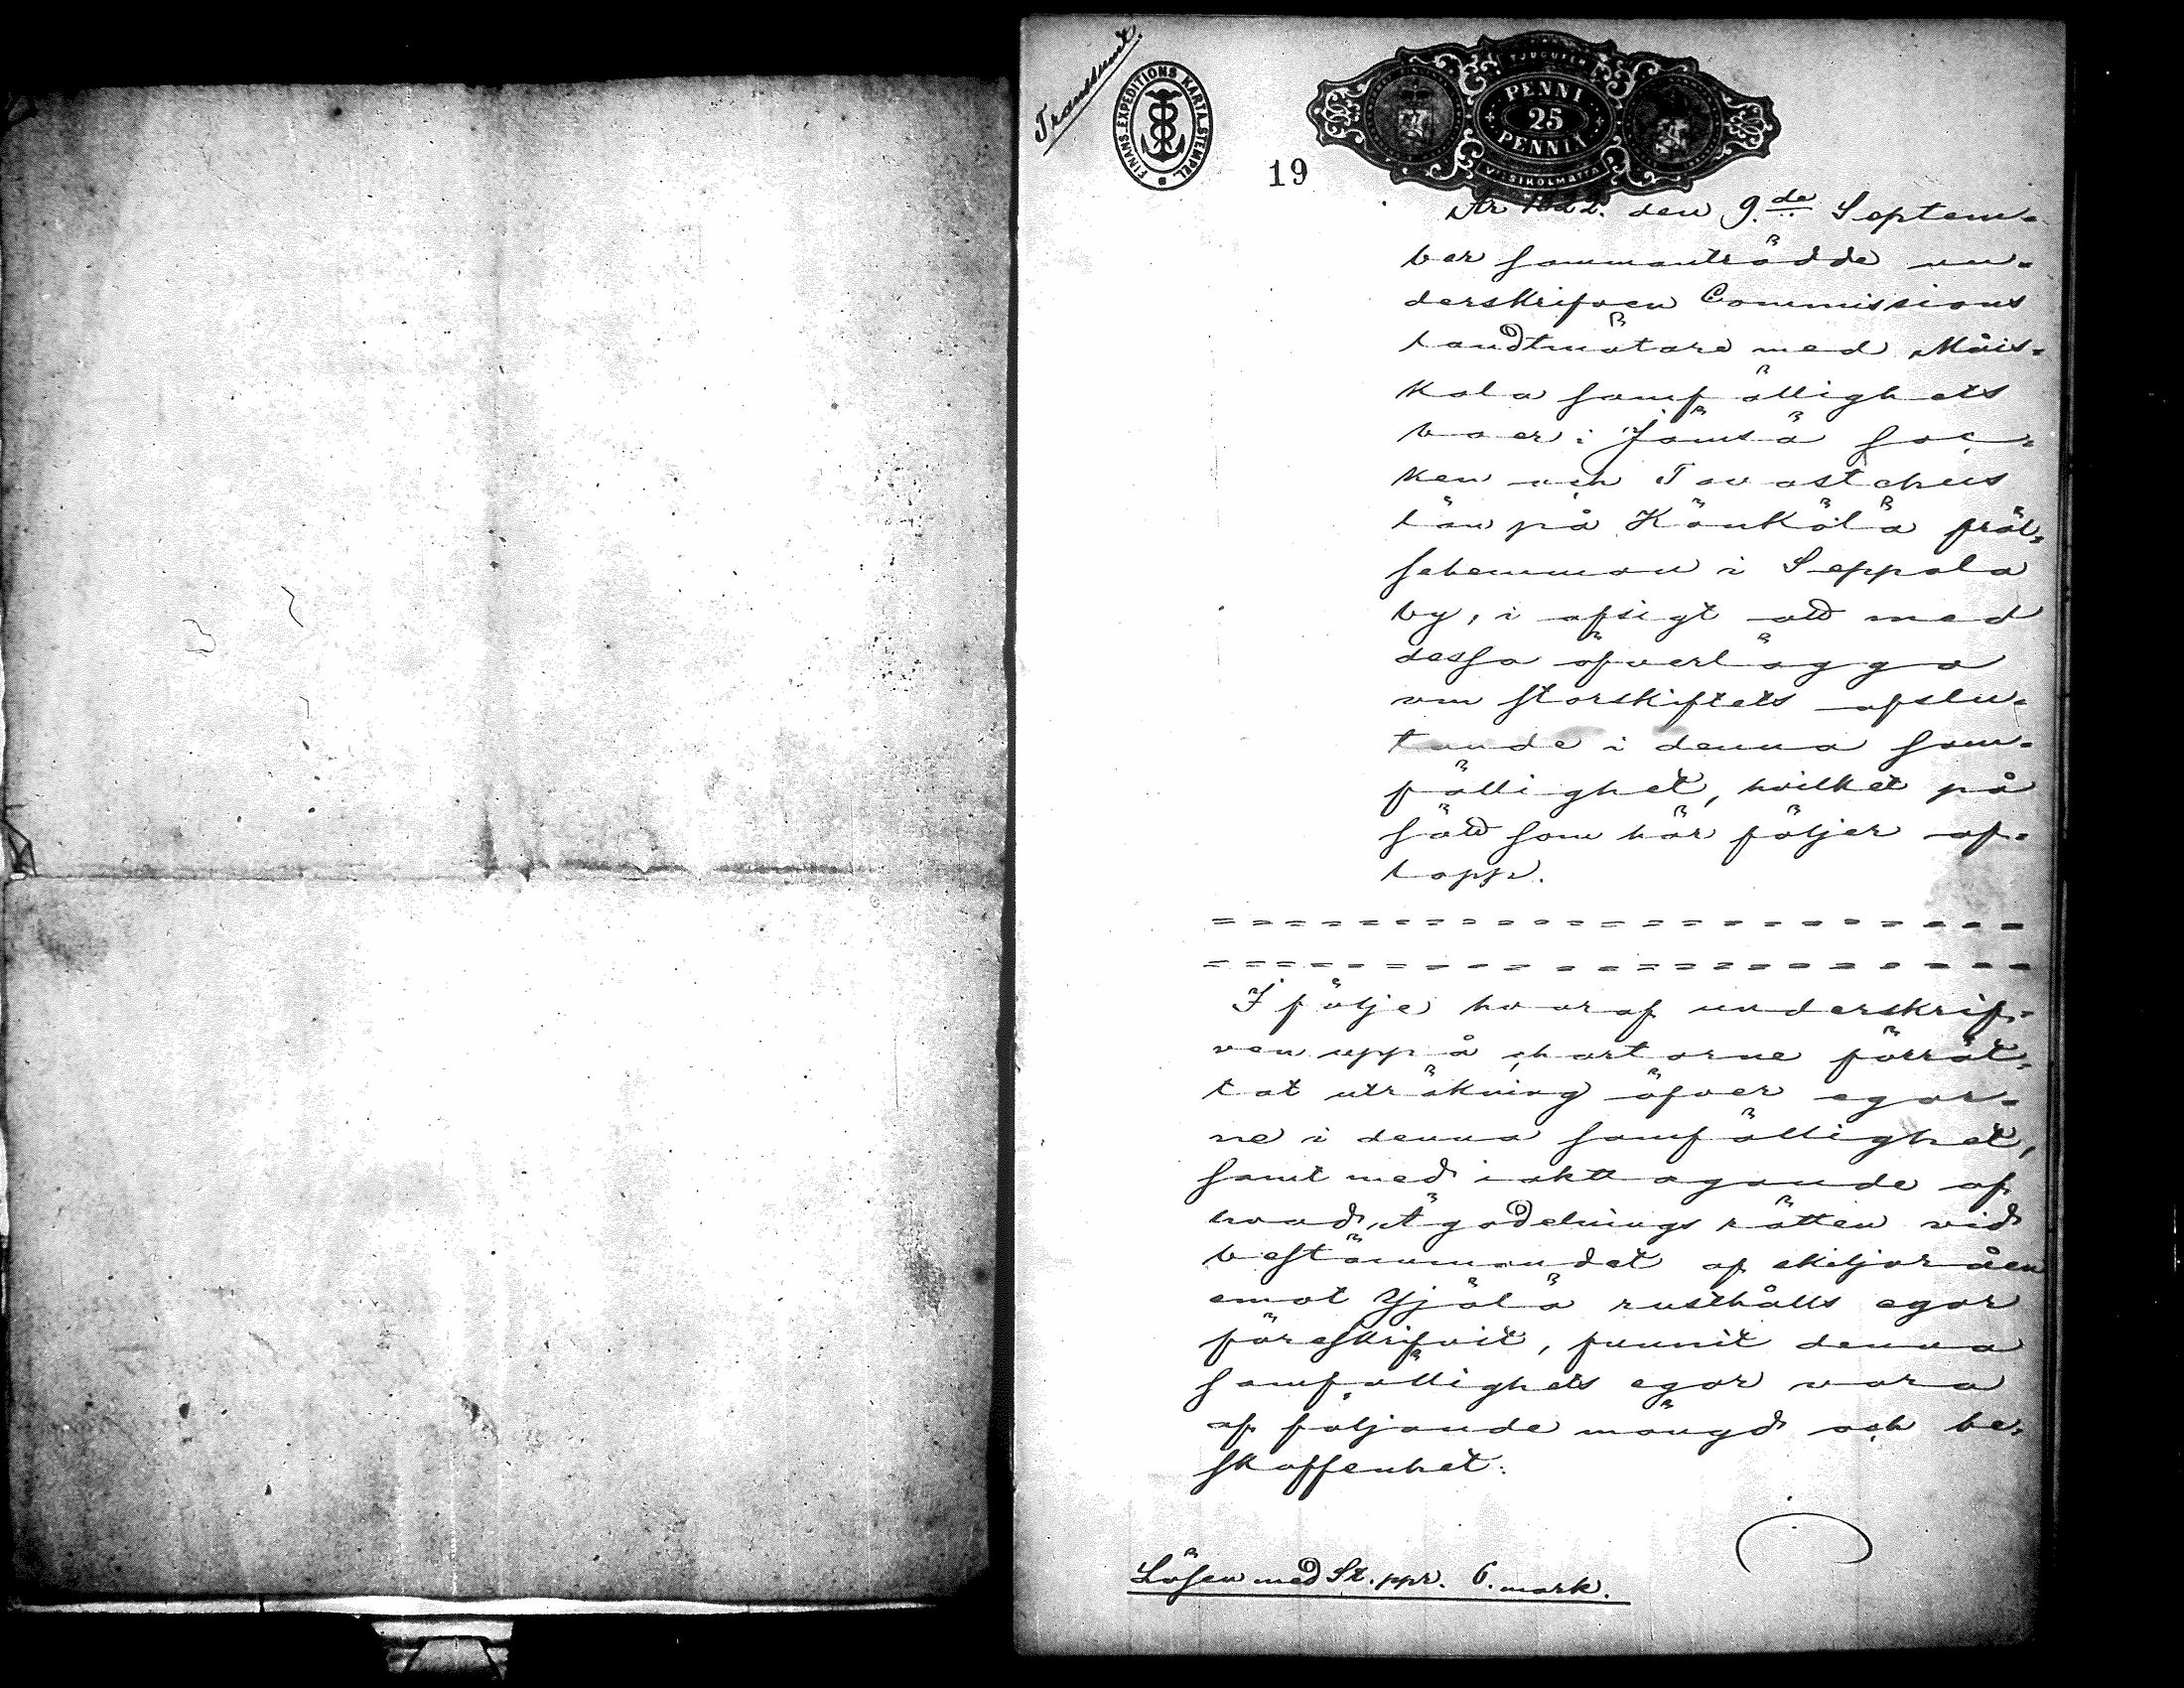 Transsumt.
FINANS-EXPEDITIONS KARTA STEMPEL.
TJUGUFEM
PENNI
25
PENNIÄ
19
År 1822. den 9.de Septem-
ber sammanträdde un-
derskrifven Commissions
landtmätare med Måis-
kala samfällighets
boer i Jämsä soc-
ken och Tavastehus
län på Känkölä fräl-
sehemman i Seppola
by, i afsigt att med
dessa öfverlägga
om storskiftets afslu-
tande i denna sam-
fällighet, hvilket på
sätt som här följer af-
lopp.
I följe hvaraf underskrif-
ven uppå chartorne förrät-
tat uträkning öfver egor-
ne i denna samfällighet,
samt med iakttagande af
hvad Ägodelnings rätten vid
bestämmandet af skiljoråen
emot Yjälä rusthålls egor
föreskrifvit, funnit denna
samfällighets egor vara
af följande mängd och be-
skaffenhet:
Lösen med St. ppr. 6. mark.